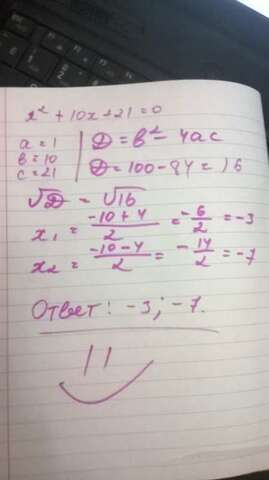 x² + 10x + 21 = 0
a = 1 | D = b² - 4ac
b = 10
c = 21 | D = 100 - 84 = 16
√D = √16
x₁ = (-10 + 4)/2 = -6/2 = -3
x₂ = (-10 - 4)/2 = -14/2 = -7
Ответ: -3; -7.